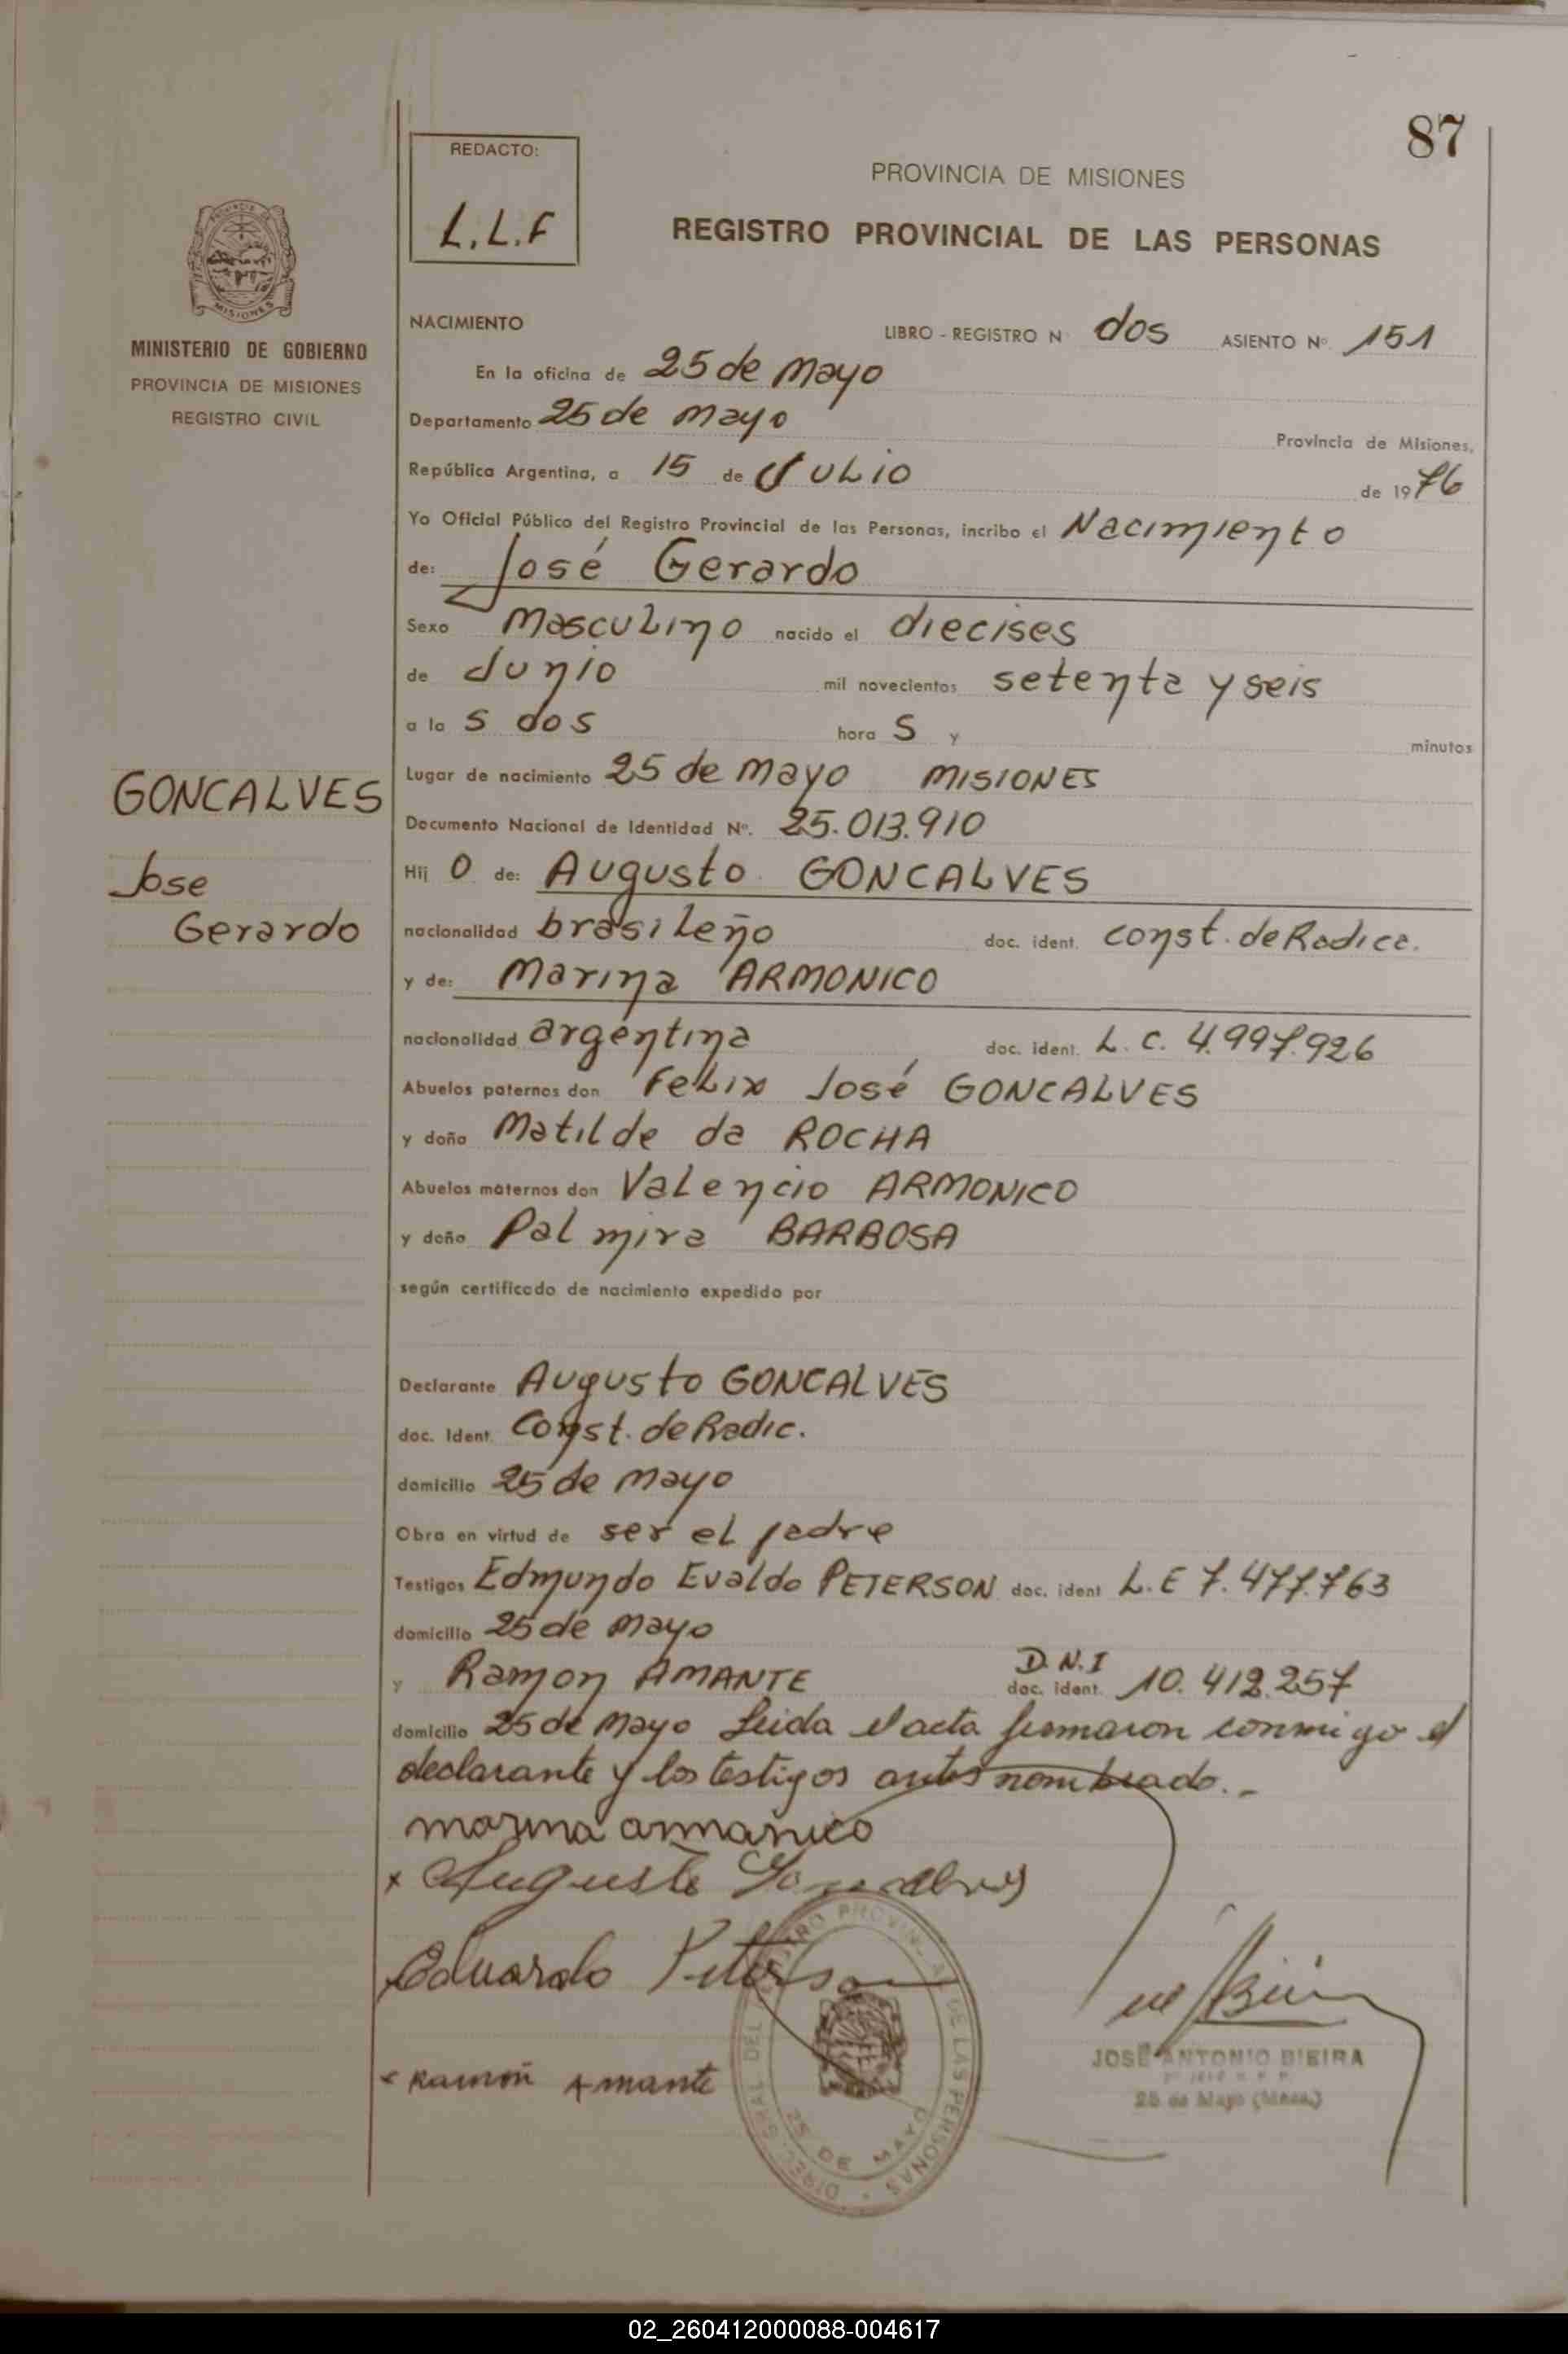 87
REDACTO:
L.L.F
PROVINCIA DE MISIONES
REGISTRO PROVINCIAL DE LAS PERSONAS
MISIONES
MINISTERIO DE GOBIERNO
PROVINCIA DE MISIONES
REGISTRO CIVIL
NACIMIENTO
LIBRO - REGISTRO N dos ASIENTO Nº. 151
En la oficina de 25 de Mayo
Departamento 25 de Mayo
Provincia de Misiones,
República Argentina, a 15 de JULIO de 1976
Yo Oficial Público del Registro Provincial de las Personas, incribo el Nacimiento
de: José Gerardo
Sexo MascULino nacido el diecises
de Junio mil novecientos setenta y seis
a la s dos hora s y minutos
GONCALVES
Jose
Gerardo
Lugar de nacimiento 25 de Mayo MISIONES
Documento Nacional de Identidad Nº. 25.013.910
Hij o de: Augusto GONCALVES
nacionalidad brasileño doc. ident. const. de Radica.
y de: Marina ARMONICO
nacionalidad argentina doc. ident. L. C. 4.997.926
Abuelos paternos don Felix José GONCALVES
y doña Matilde da ROCHA
Abuelos maternos don Valencio ARMONICO
y doña Palmira BARBOSA
según certificado de nacimiento expedido por
Declarante Augusto GONCALVES
doc. Ident. Const. de Radic.
domicilio 25 de Mayo
Obra en virtud de ser el padre
Testigos Edmundo Evaldo PETERSON doc. ident L.E 7.477.763
domicilio 25 de Mayo
y Ramon AMANTE D.N.I doc. ident. 10.412.257
domicilio 25 de Mayo Leida el acta firmaron conmigo el
declarante y los testigos antes nombrado.-
marina armanico
x Auguste Goncalves
Eduardo Peterson
x Ramón Amante
DIREC. GRAL DEL REGISTRO PROVINCIAL DE LAS PERSONAS
25 DE MAYO
JOSE ANTONIO BIEIRA
25 de Mayo (Mnes.)
02_260412000088-004617